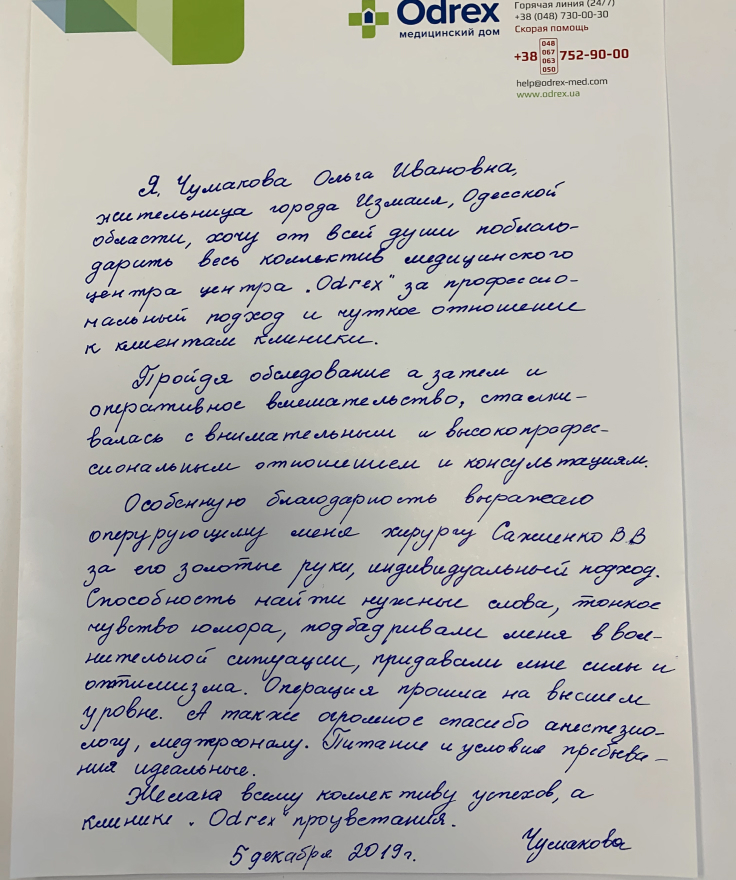 Odrex
медицинский дом
Горячая линия (24/7)
+38 (048) 730-00-30
Скорая помощь
+38 048 067 063 050 752-90-00
help@odrex-med.com
www.odrex.ua
Я, Чумакова Ольга Ивановна,
жительница города Измаил, Одесской
области, хочу от всей души поблаго-
дарить весь коллектив медицинского
центра центра „Odrex" за профессио-
нальный подход и чуткое отношение
к клиентам клиники.
Пройдя обследование а затем и
оперативное вмешательство, сталки-
валась с внимательным и высокопрофес-
сиональным отношением и консультациям.
Особенную благодарность выражаю
оперурующему меня хирургу Сажиенко В.В
за его золотые руки, индивидуальный подход.
Способность найти нужные слова, тонкое
чувство юмора, подбадривали меня в вол-
нительной ситуации, придавали мне силы и
оптимизма. Операция прошла на высшем
уровне. А также огромное спасибо анестезио-
логу, медперсоналу. Питание и условия пребыва-
ния идеальные.
Желаю всему коллективу успехов, а
клинике „Odrex" процветания.
5 декабря 2019г.
Чумакова